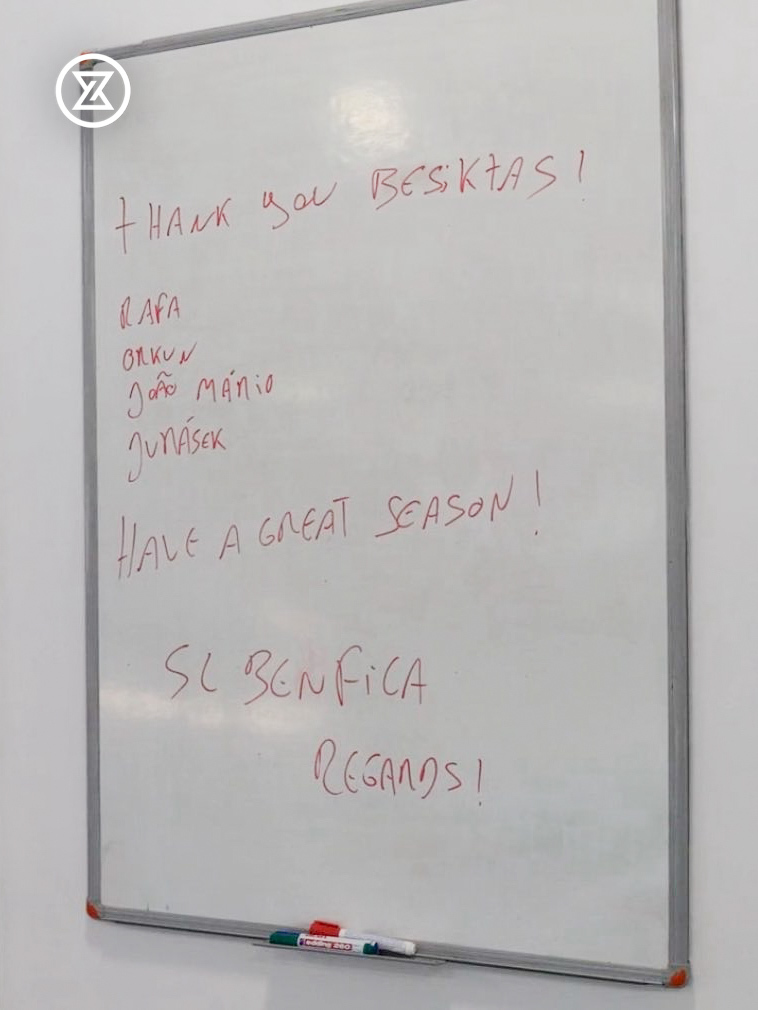 THANK you BESiKTAS!
RAFA
ORKUN
JOÃO MÁRIO
JURÁSEK
HAVE A GREAT SEASON!
SL BENFiCA
REGARDS!
edding 260